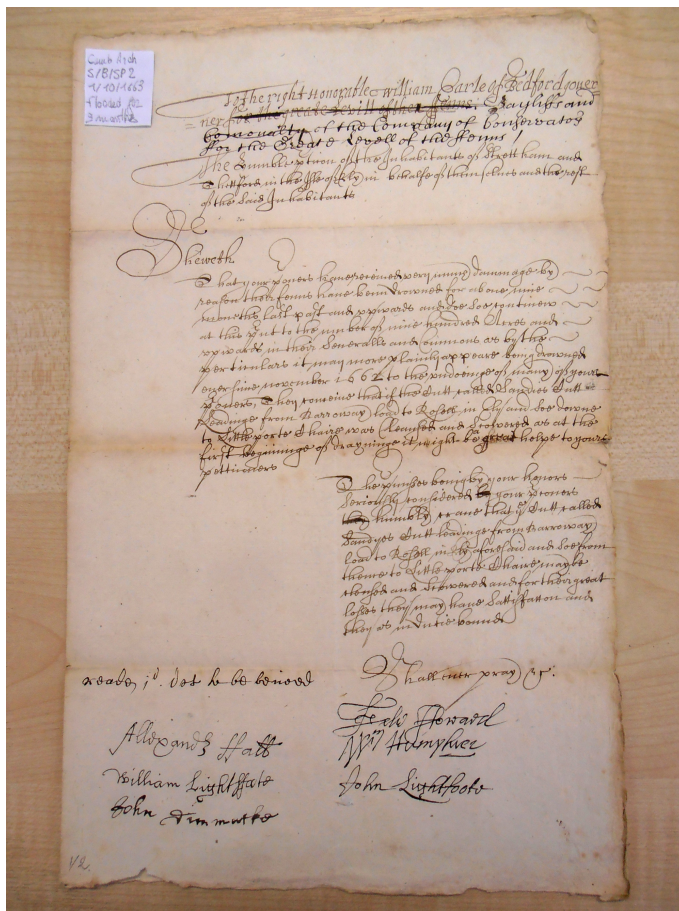 Camb Arch
S/B/SP 2
1/10/1663
Flooded for
9 months
To the right Honorable William Earle of Bedford gover=
=ner for the greate Levill of the ffenns; Bayliffs and
Comonalty of the Company of Conservators
ffor the Greate Levell of the ffenns /
The humble petition of the Inhabitants of Strettham and
Thettford in the Isle of Ely in behalfe of them selves and the rest
of the said Inhabitants
Sheweth
That your petioners have received very much dammage by
reason their ffenns have bene drowned for above nine
moneths last past and upwards and doe soe continew
at this present to the number of nine hundred Acres and
upwards in their Severalls and Commons as by the
perticulars it may more plainly appeare being drowned
ever since november 1662 to the undoeinge of many of your
petioners, They conceive that if the Cutt called Sandies Cutt
leadinge from Barroway load to in Ely and soe downe
to Little porte Chaire was Cleansed and Scowered as at the
first beginninge of drayninge it might be great helpe to your
petitioners
The premisses being by your honors
Seriously considered your petioners
humbly crave that the Cutt called
Sandyes Cutt leadinge from Barroway
load to in Ely aforesaid and soe from
thence to Little porte Chaire may be
clensed and Scowered and for their great
losses they may have Sattisfaction and
they as in dutie bound
Shall ever pray &c.
reade, 1o. Oct to be
Allexander Hall
William Lightffate
John
Howard
Wm Humphrer
John Lightfoote
1/2.